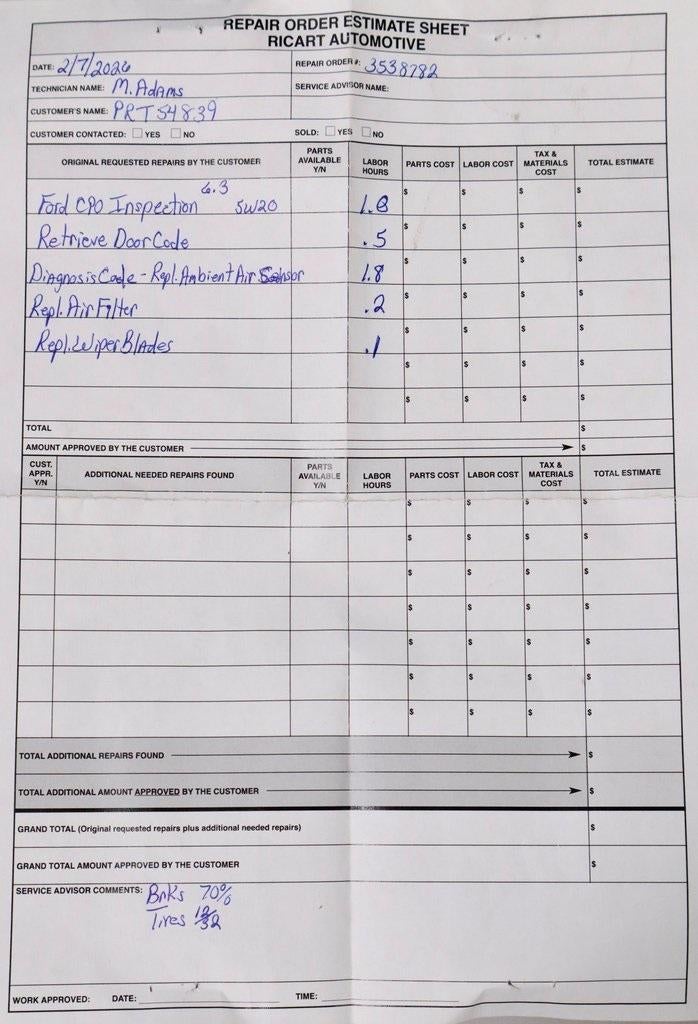 REPAIR ORDER ESTIMATE SHEET
RICART AUTOMOTIVE
DATE: 2/7/2026 REPAIR ORDER #: 3538782
TECHNICIAN NAME: M. Adams SERVICE ADVISOR NAME:
CUSTOMER'S NAME: PRT54839
CUSTOMER CONTACTED: YES NO SOLD: YES NO
ORIGINAL REQUESTED REPAIRS BY THE CUSTOMER PARTS AVAILABLE Y/N LABOR HOURS PARTS COST LABOR COST TAX & MATERIALS COST TOTAL ESTIMATE
6.3
Ford CPO Inspection 5W20 $ $ $ $
Retrieve Door Code .5 $ $ $ $
Diagnosis Code - Repl. Ambient Air Sensor 1.8 $ $ $ $
Repl. Air Filter .2 $ $ $ $
Repl. Wiper Blades .1 $ $ $ $
$ $ $ $
$ $ $ $
TOTAL $
AMOUNT APPROVED BY THE CUSTOMER $
CUST. APPR. Y/N ADDITIONAL NEEDED REPAIRS FOUND PARTS AVAILABLE Y/N LABOR HOURS PARTS COST LABOR COST TAX & MATERIALS COST TOTAL ESTIMATE
$ $ $ $
$ $ $ $
$ $ $ $
$ $ $ $
$ $ $ $
$ $ $ $
$ $ $ $
TOTAL ADDITIONAL REPAIRS FOUND $
TOTAL ADDITIONAL AMOUNT APPROVED BY THE CUSTOMER $
GRAND TOTAL (Original requested repairs plus additional needed repairs) $
GRAND TOTAL AMOUNT APPROVED BY THE CUSTOMER $
SERVICE ADVISOR COMMENTS: Brks 70%
Tires 12/32
WORK APPROVED: DATE: TIME: